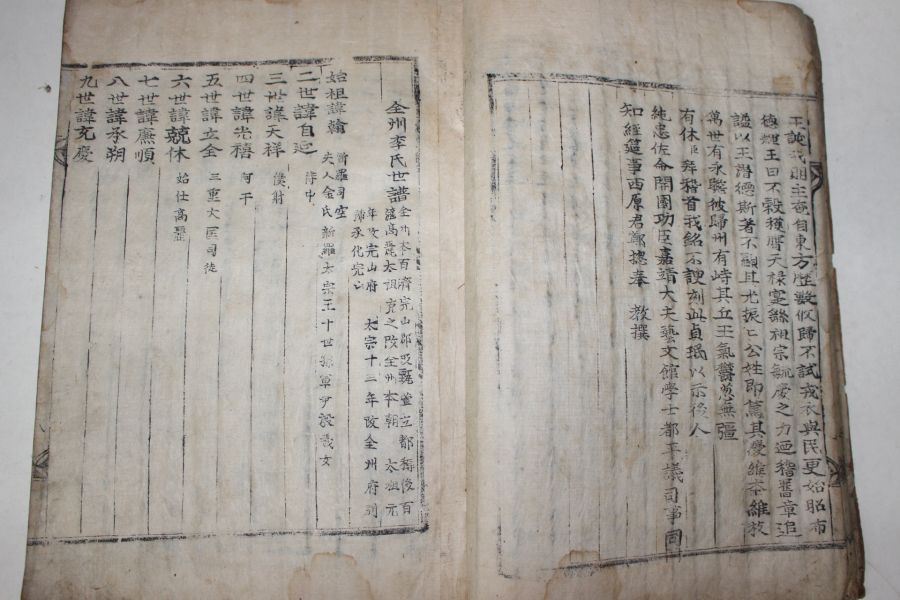 王誕我朋主竜自東方歷數攸歸不試戎衣與民更始昭布
德耀王曰不穀獲膺天祿寔繇祖宗毓慶之力迺稽舊章追
謚以王潛德斯著不顯其光振振公姓即篤其慶維本維放
萬世有永聯彼歸州有峙其丘王氣鬱葱無疆
有休臣拜稽首我銘不諛刻此貞珉以示後人
純忠佐命開國功臣嘉靖大夫藝文館學士都平議司事同
知經筵事西原君鄭摠奉 教撰
全州李氏世譜
全州本百濟完山郡 甄萱立都稱後百
濟高麗太祖克之改全州本朝 太祖元
年改完山府 太宗十三年改全州府別
號承化完山
始祖諱翰
新羅司空
夫人金氏新羅太宗王十世孫軍尹殷義女
二世諱自延 侍中
三世諱天祥 僕射
四世諱光禧 阿干
五世諱立全 三重大匡司徒
六世諱兢休 始仕高麗
七世諱廉順
八世諱承朔
九世諱充慶